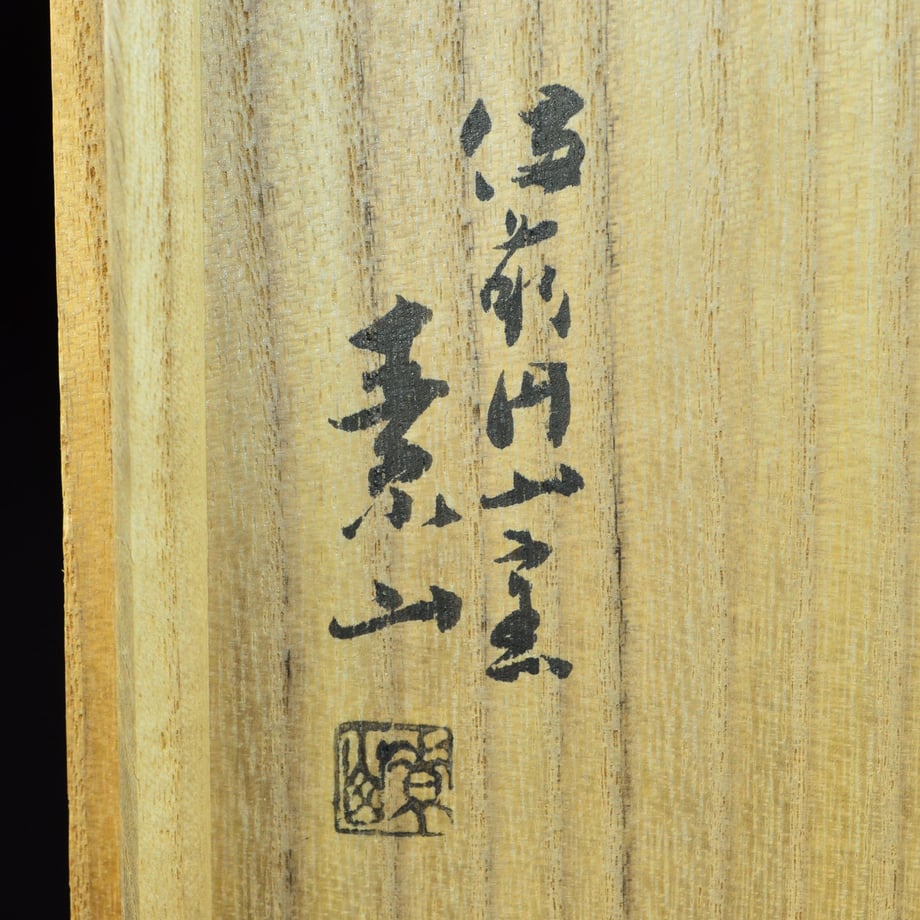 備前円山窯
素山